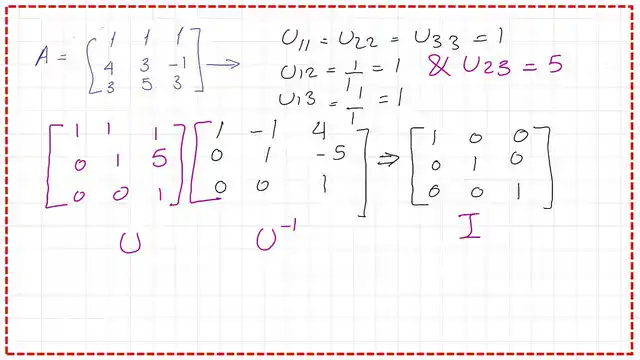 A = [1 1 1; 4 3 -1; 3 5 3] →
U11 = U22 = U33 = 1
U12 = 1/1 = 1 & U23 = 5
U13 = 1/1 = 1
[1 1 1; 0 1 5; 0 0 1] [1 -1 4; 0 1 -5; 0 0 1] ⇒ [1 0 0; 0 1 0; 0 0 1]
U U⁻¹ I